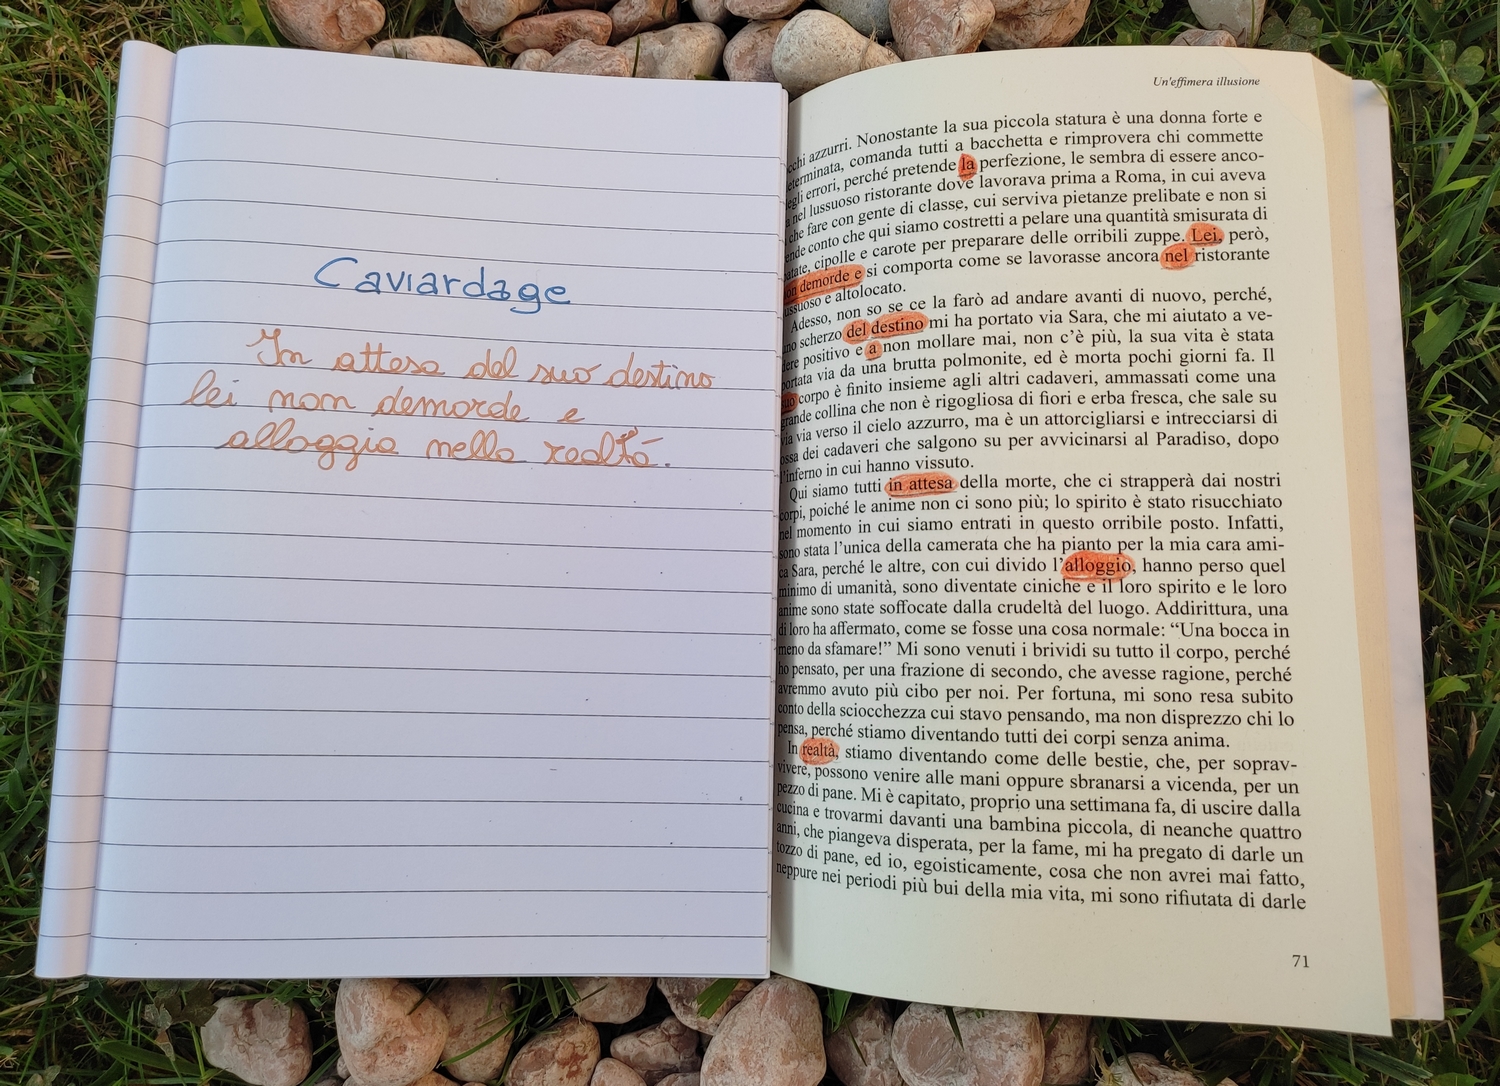 Caviardage
In attesa del suo destino
lei non demorde e
alloggia nella realtà.
Un'effimera illusione
chi azzurri. Nonostante la sua piccola statura è una donna forte e
terminata, comanda tutti a bacchetta e rimprovera chi commette
egli errori, perché pretende la perfezione, le sembra di essere anco-
nel lussuoso ristorante dove lavorava prima a Roma, in cui aveva
che fare con gente di classe, cui serviva pietanze prelibate e non si
ende conto che qui siamo costretti a pelare una quantità smisurata di
patate, cipolle e carote per preparare delle orribili zuppe. Lei, però,
on demorde e si comporta come se lavorasse ancora nel ristorante
ussuoso e altolocato.
Adesso, non so se ce la farò ad andare avanti di nuovo, perché,
uno scherzo del destino mi ha portato via Sara, che mi aiutato a ve-
dere positivo e a non mollare mai, non c'è più, la sua vita è stata
portata via da una brutta polmonite, ed è morta pochi giorni fa. Il
suo corpo è finito insieme agli altri cadaveri, ammassati come una
grande collina che non è rigogliosa di fiori e erba fresca, che sale su
via via verso il cielo azzurro, ma è un attorcigliarsi e intrecciarsi di
ossa dei cadaveri che salgono su per avvicinarsi al Paradiso, dopo
l'inferno in cui hanno vissuto.
Qui siamo tutti in attesa della morte, che ci strapperà dai nostri
corpi, poiché le anime non ci sono più; lo spirito è stato risucchiato
nel momento in cui siamo entrati in questo orribile posto. Infatti,
sono stata l'unica della camerata che ha pianto per la mia cara ami-
ca Sara, perché le altre, con cui divido l'alloggio, hanno perso quel
minimo di umanità, sono diventate ciniche e il loro spirito e le loro
anime sono state soffocate dalla crudeltà del luogo. Addirittura, una
di loro ha affermato, come se fosse una cosa normale: “Una bocca in
meno da sfamare!” Mi sono venuti i brividi su tutto il corpo, perché
ho pensato, per una frazione di secondo, che avesse ragione, perché
avremmo avuto più cibo per noi. Per fortuna, mi sono resa subito
conto della sciocchezza cui stavo pensando, ma non disprezzo chi lo
pensa, perché stiamo diventando tutti dei corpi senza anima.
In realtà, stiamo diventando come delle bestie, che, per soprav-
vivere, possono venire alle mani oppure sbranarsi a vicenda, per un
pezzo di pane. Mi è capitato, proprio una settimana fa, di uscire dalla
cucina e trovarmi davanti una bambina piccola, di neanche quattro
anni, che piangeva disperata, per la fame, mi ha pregato di darle un
tozzo di pane, ed io, egoisticamente, cosa che non avrei mai fatto,
neppure nei periodi più bui della mia vita, mi sono rifiutata di darle
71